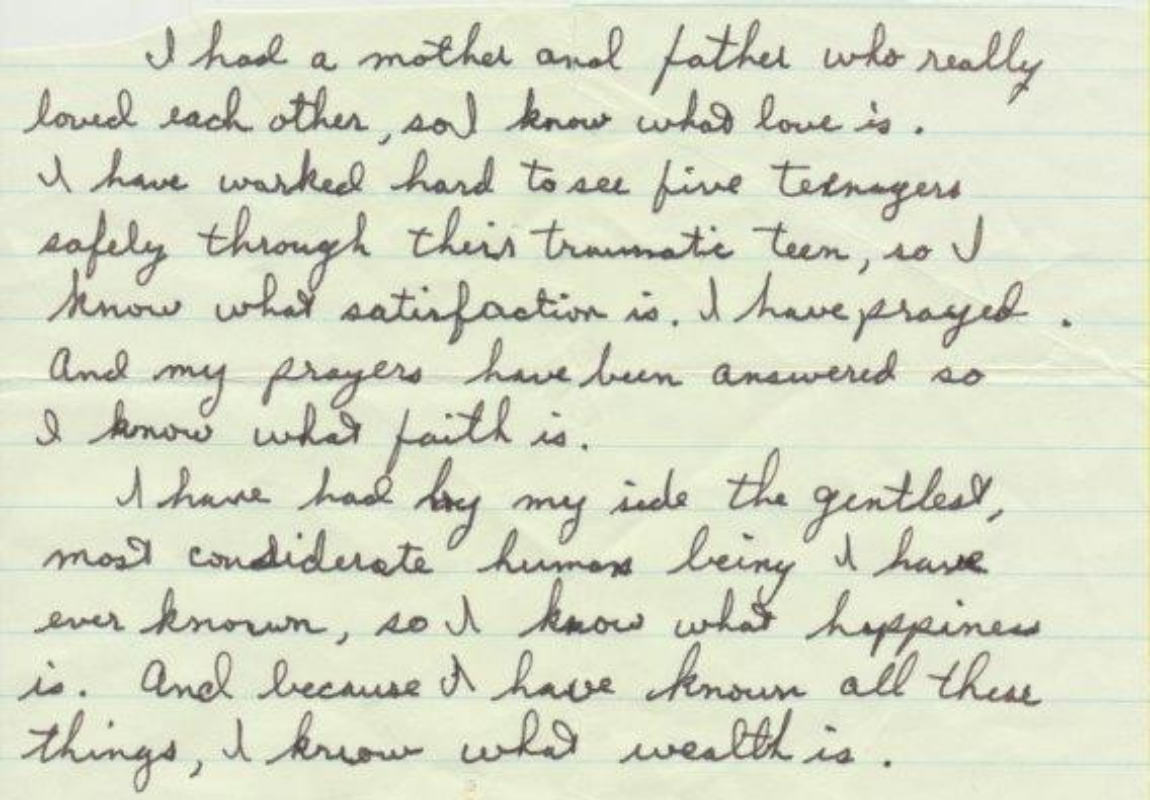 I had a mother and father who really
loved each other, so I know what love is.
I have worked hard to see five teenagers
safely through their traumatic teen, so I
know what satisfaction is. I have prayed.
And my prayers have been answered so
I know what faith is.
I have had by my side the gentlest,
most considerate human being I have
ever known, so I know what happiness
is. And because I have known all these
things, I know what wealth is.